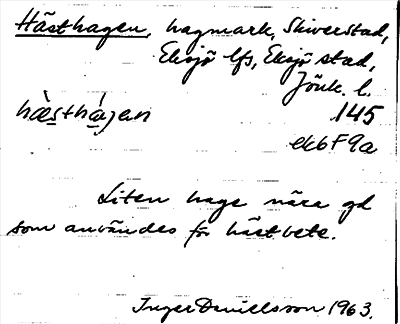 Hästhagen, hagmark, Skiverstad,
Eksjö lfs, Eksjö stad,
Jönk. l.
hæ̀sthá̱gen 145
ek6F9a
Liten hage nära gd
som användes för hästbete.
Inger Danielsson 1963.